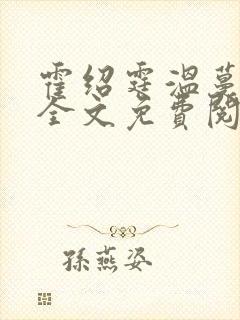 霍绍霆温蔓
全文免费阅
孫燕姿